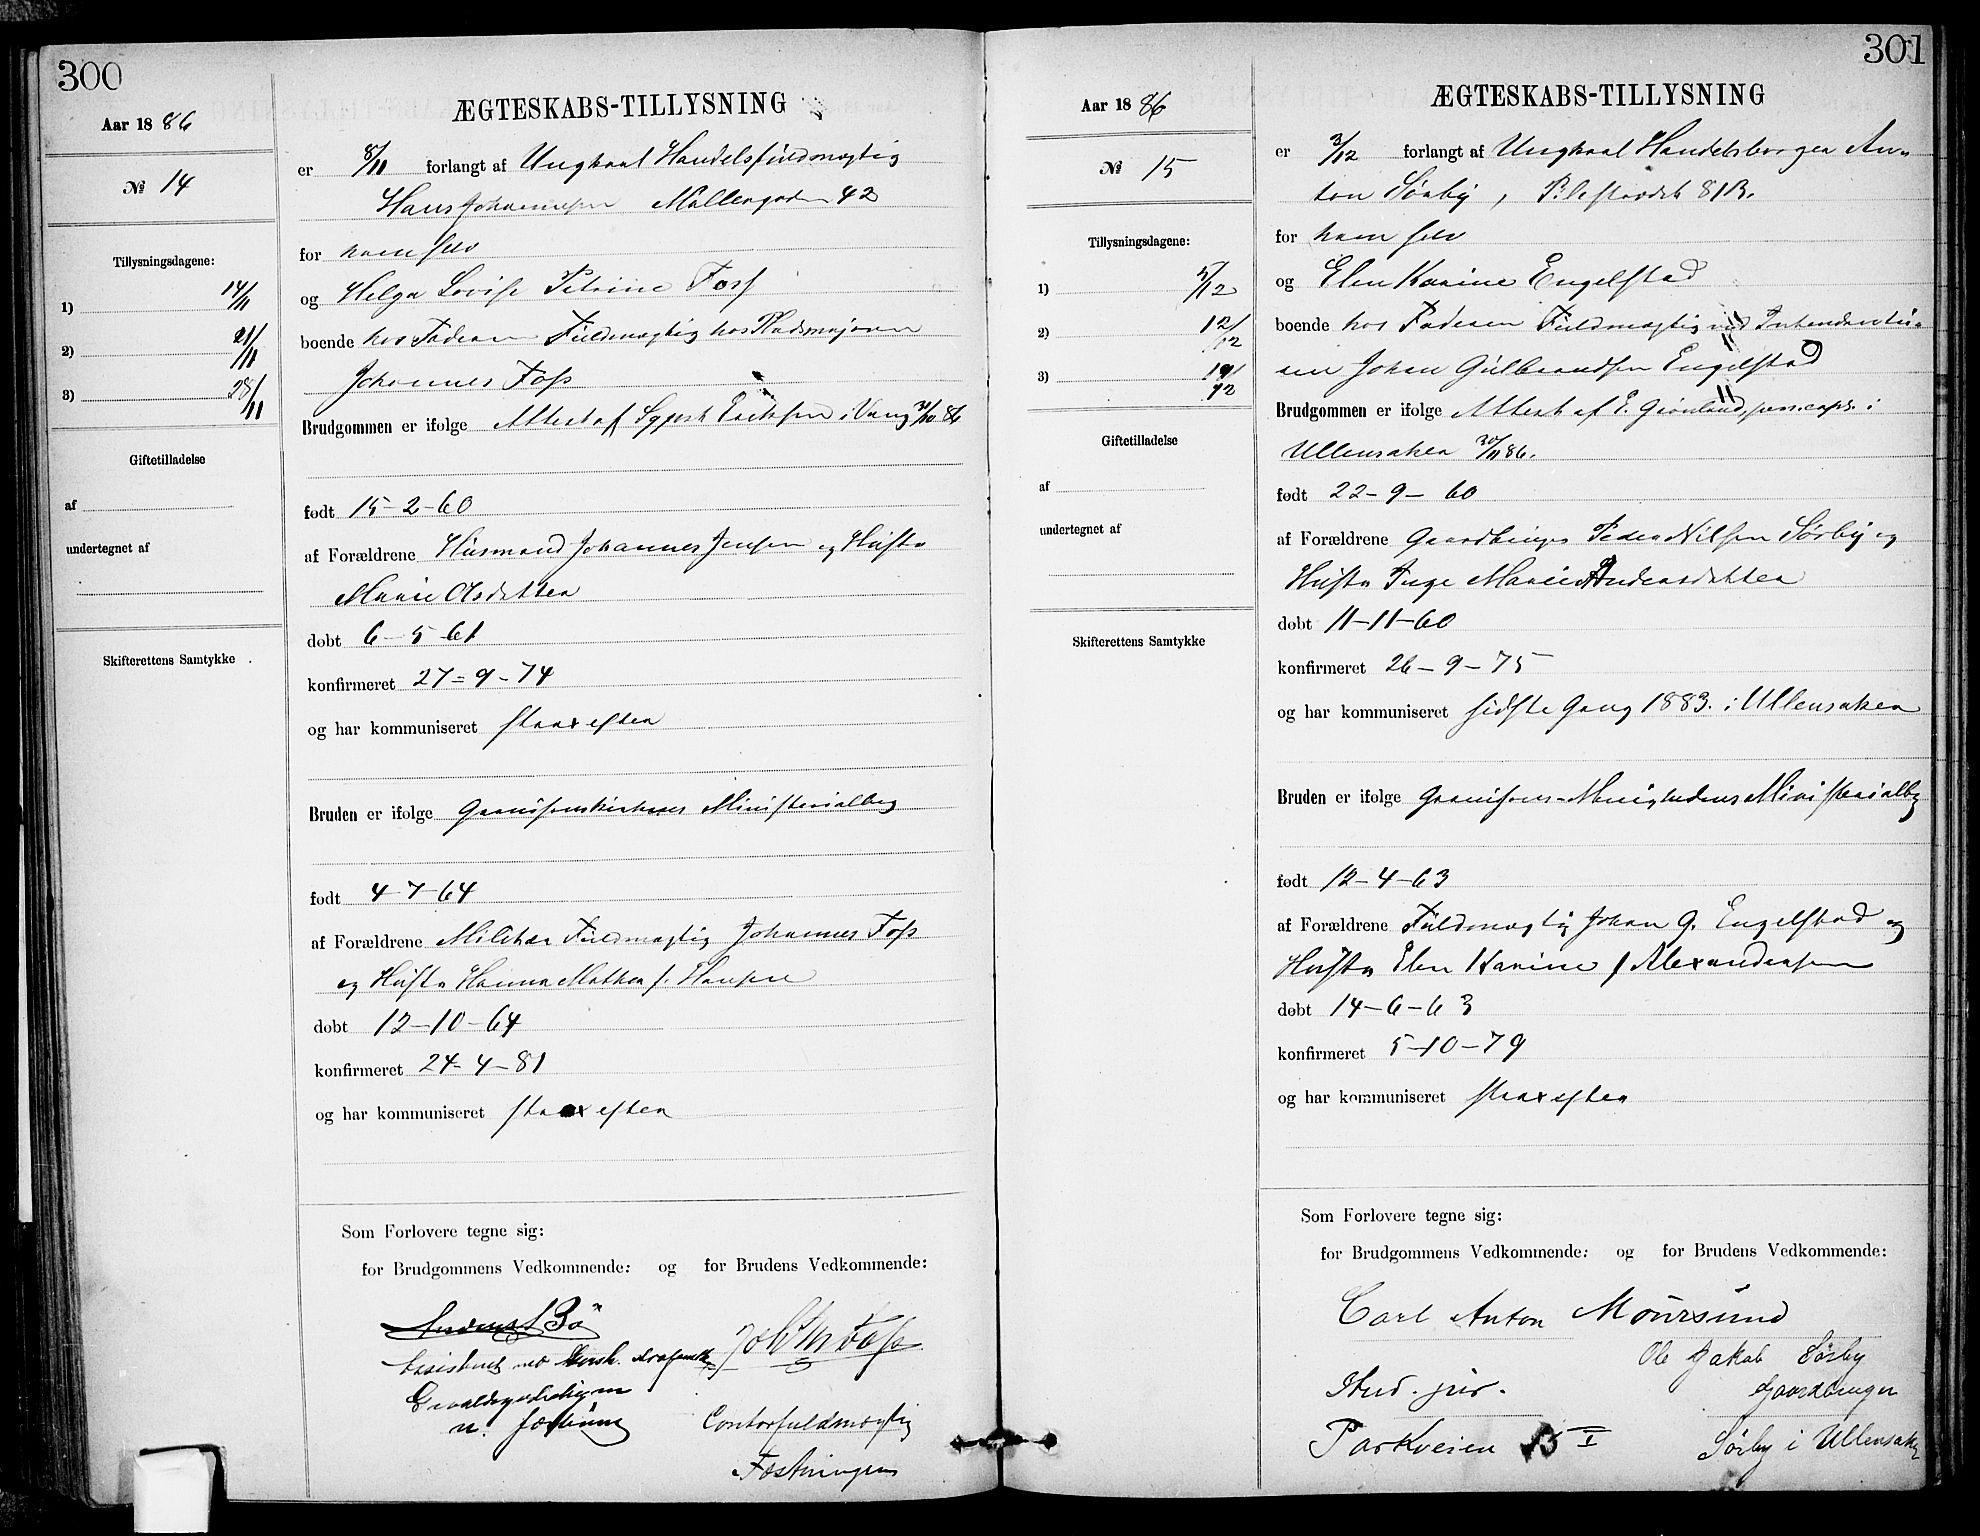 300
Aar 1886
№ 14
Tillysningsdagene:
1) 14/11
2) 21/11
3) 28/11
Giftetilladelse
af
undertegnet af
Skifterettens Samtykke
ÆGTESKABS-TILLYSNING
er 8/11 forlangt af Ungkarl Handelsfuldmægtig
Hans Johannesen Møllergaden 42
for ham selv
og Helga Lovise Petrine Foss
boende hos Faderen Fuldmægtig hos Pladsmajoren
Johannes Foss
Brudgommen er ifølge Attest af Sgprst Eriksen i Vang 31/10 86
født 15-2-60
af Forældrene Husmand Johannes Jensen og Hustr
Marie Olsdatter
døbt 6-5-61
konfirmeret 27-9-74
og har kommuniseret strax efter
Bruden er ifølge Garnisonskirkens Ministerialbog
født 4-7-64
af Forældrene Militær Fuldmægtig Johannes Foss
og Hustr Hanna Mathea f. Hansen
døbt 12-10-64
konfirmeret 24-4-81
og har kommuniseret strax efter
Som Forlovere tegne sig:
for Brudgommens Vedkommende: og for Brudens Vedkommende:
Bö
Joh Foss
Contorfuldmægtig
Fæstningen
301
Aar 1886
№ 15
Tillysningsdagene:
1) 5/12
2) 12/12
3) 19/12
Giftetilladelse
af
undertegnet af
Skifterettens Samtykke
ÆGTESKABS-TILLYSNING
er 3/12 forlangt af Ungkarl Handelsborger An-
ton Sørby, Pilestrædet 81B.
for ham selv
og Elen Karine Engelstad
boende hos Faderen Fuldmægtig ved Intendantu-
ren Johan Gulbrandsen Engelstad
Brudgommen er ifølge Attest af E. Grønland, pers. cap. i
Ullensaker 30/11 86.
født 22-9-60
af Forældrene Gaardbruger Peder Nilsen Sørby og
Hustr Inge Marie Andersdatter
døbt 11-11-60
konfirmeret 26-9-75
og har kommuniseret sidste Gang 1883. i Ullensaker
Bruden er ifølge Garnisons-Menighedens Ministerialbg
født 12-4-63
af Forældrene Fuldmægtig Johan G. Engelstad og
Hustr Elen Karine f Alexandersen
døbt 14-6-63
konfirmeret 5-10-79
og har kommuniseret strax efter
Som Forlovere tegne sig:
for Brudgommens Vedkommende: og for Brudens Vedkommende:
Carl Anton Moursund
Ole Jakob Sørby
Stud. jur.
Gaardbruger
Parkveien 5 I
Sørby i Ullensaker